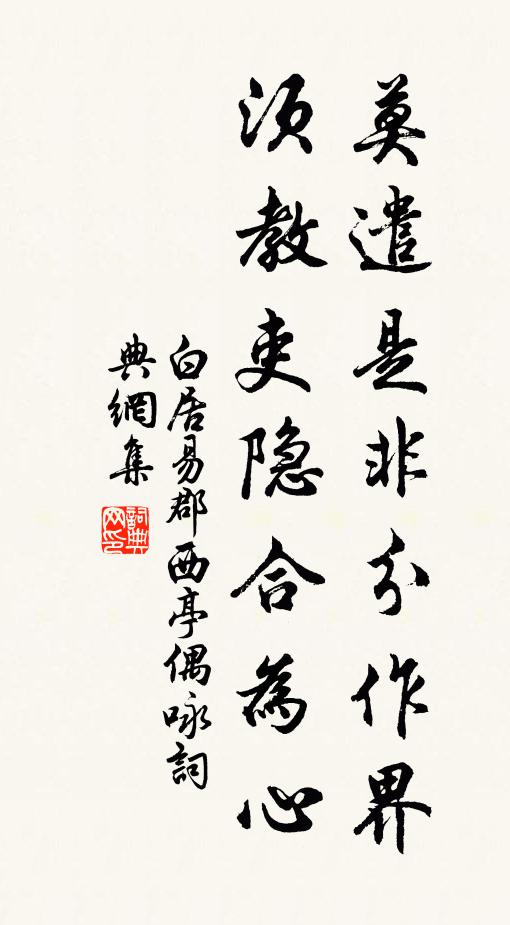 莫遣是非分作界
須教吏隐合為心
白居易郡西亭偶咏詞
典網集
詞典网印